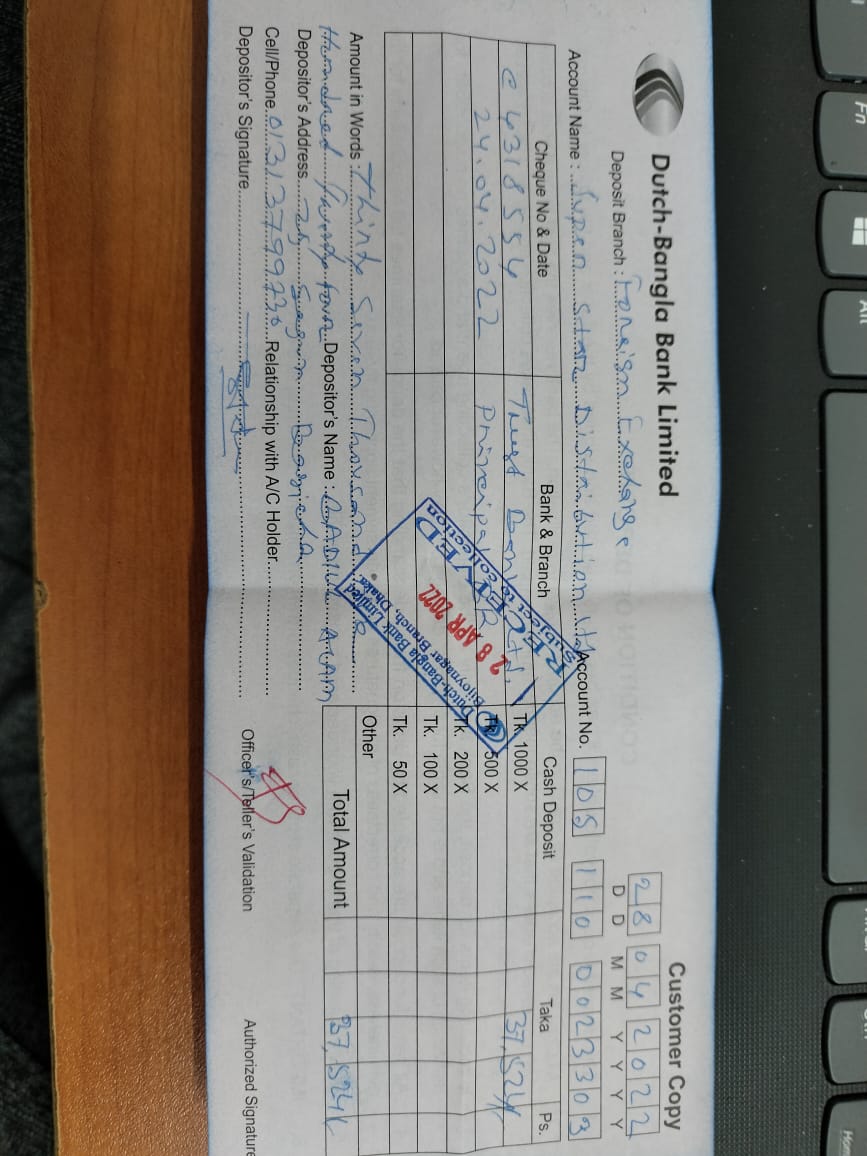 Fn
Alt
Home
Customer Copy
Dutch-Bangla Bank Limited
28 04 2022
D D M M Y Y Y Y
Deposit Branch : Foreign Exchange
Account Name : Super Star Distribution Ltd Account No. 105 110 0023303
Cheque No & Date Bank & Branch Cash Deposit Taka Ps.
C 4318554 Trust Bank Ltd. Tk. 1000 X 37,524/
24.04.2022 Principal BR Tk. 500 X
Tk. 200 X
Tk. 100 X
Tk. 50 X
Other
Total Amount 37,524/
RECEIVED
Subject to collection
28 APR 2022
Dutch-Bangla Bank Limited
Bijoynagar Branch, Dhaka.
Amount in Words : Thirty Seven Thousand
Hundred Twenty four Depositor's Name : BADIUL ALAM
Depositor's Address 25, Segun Bagicha
Cell/Phone. 01313799736 Relationship with A/C Holder
Depositor's Signature
Officer's/Teller's Validation Authorized Signature